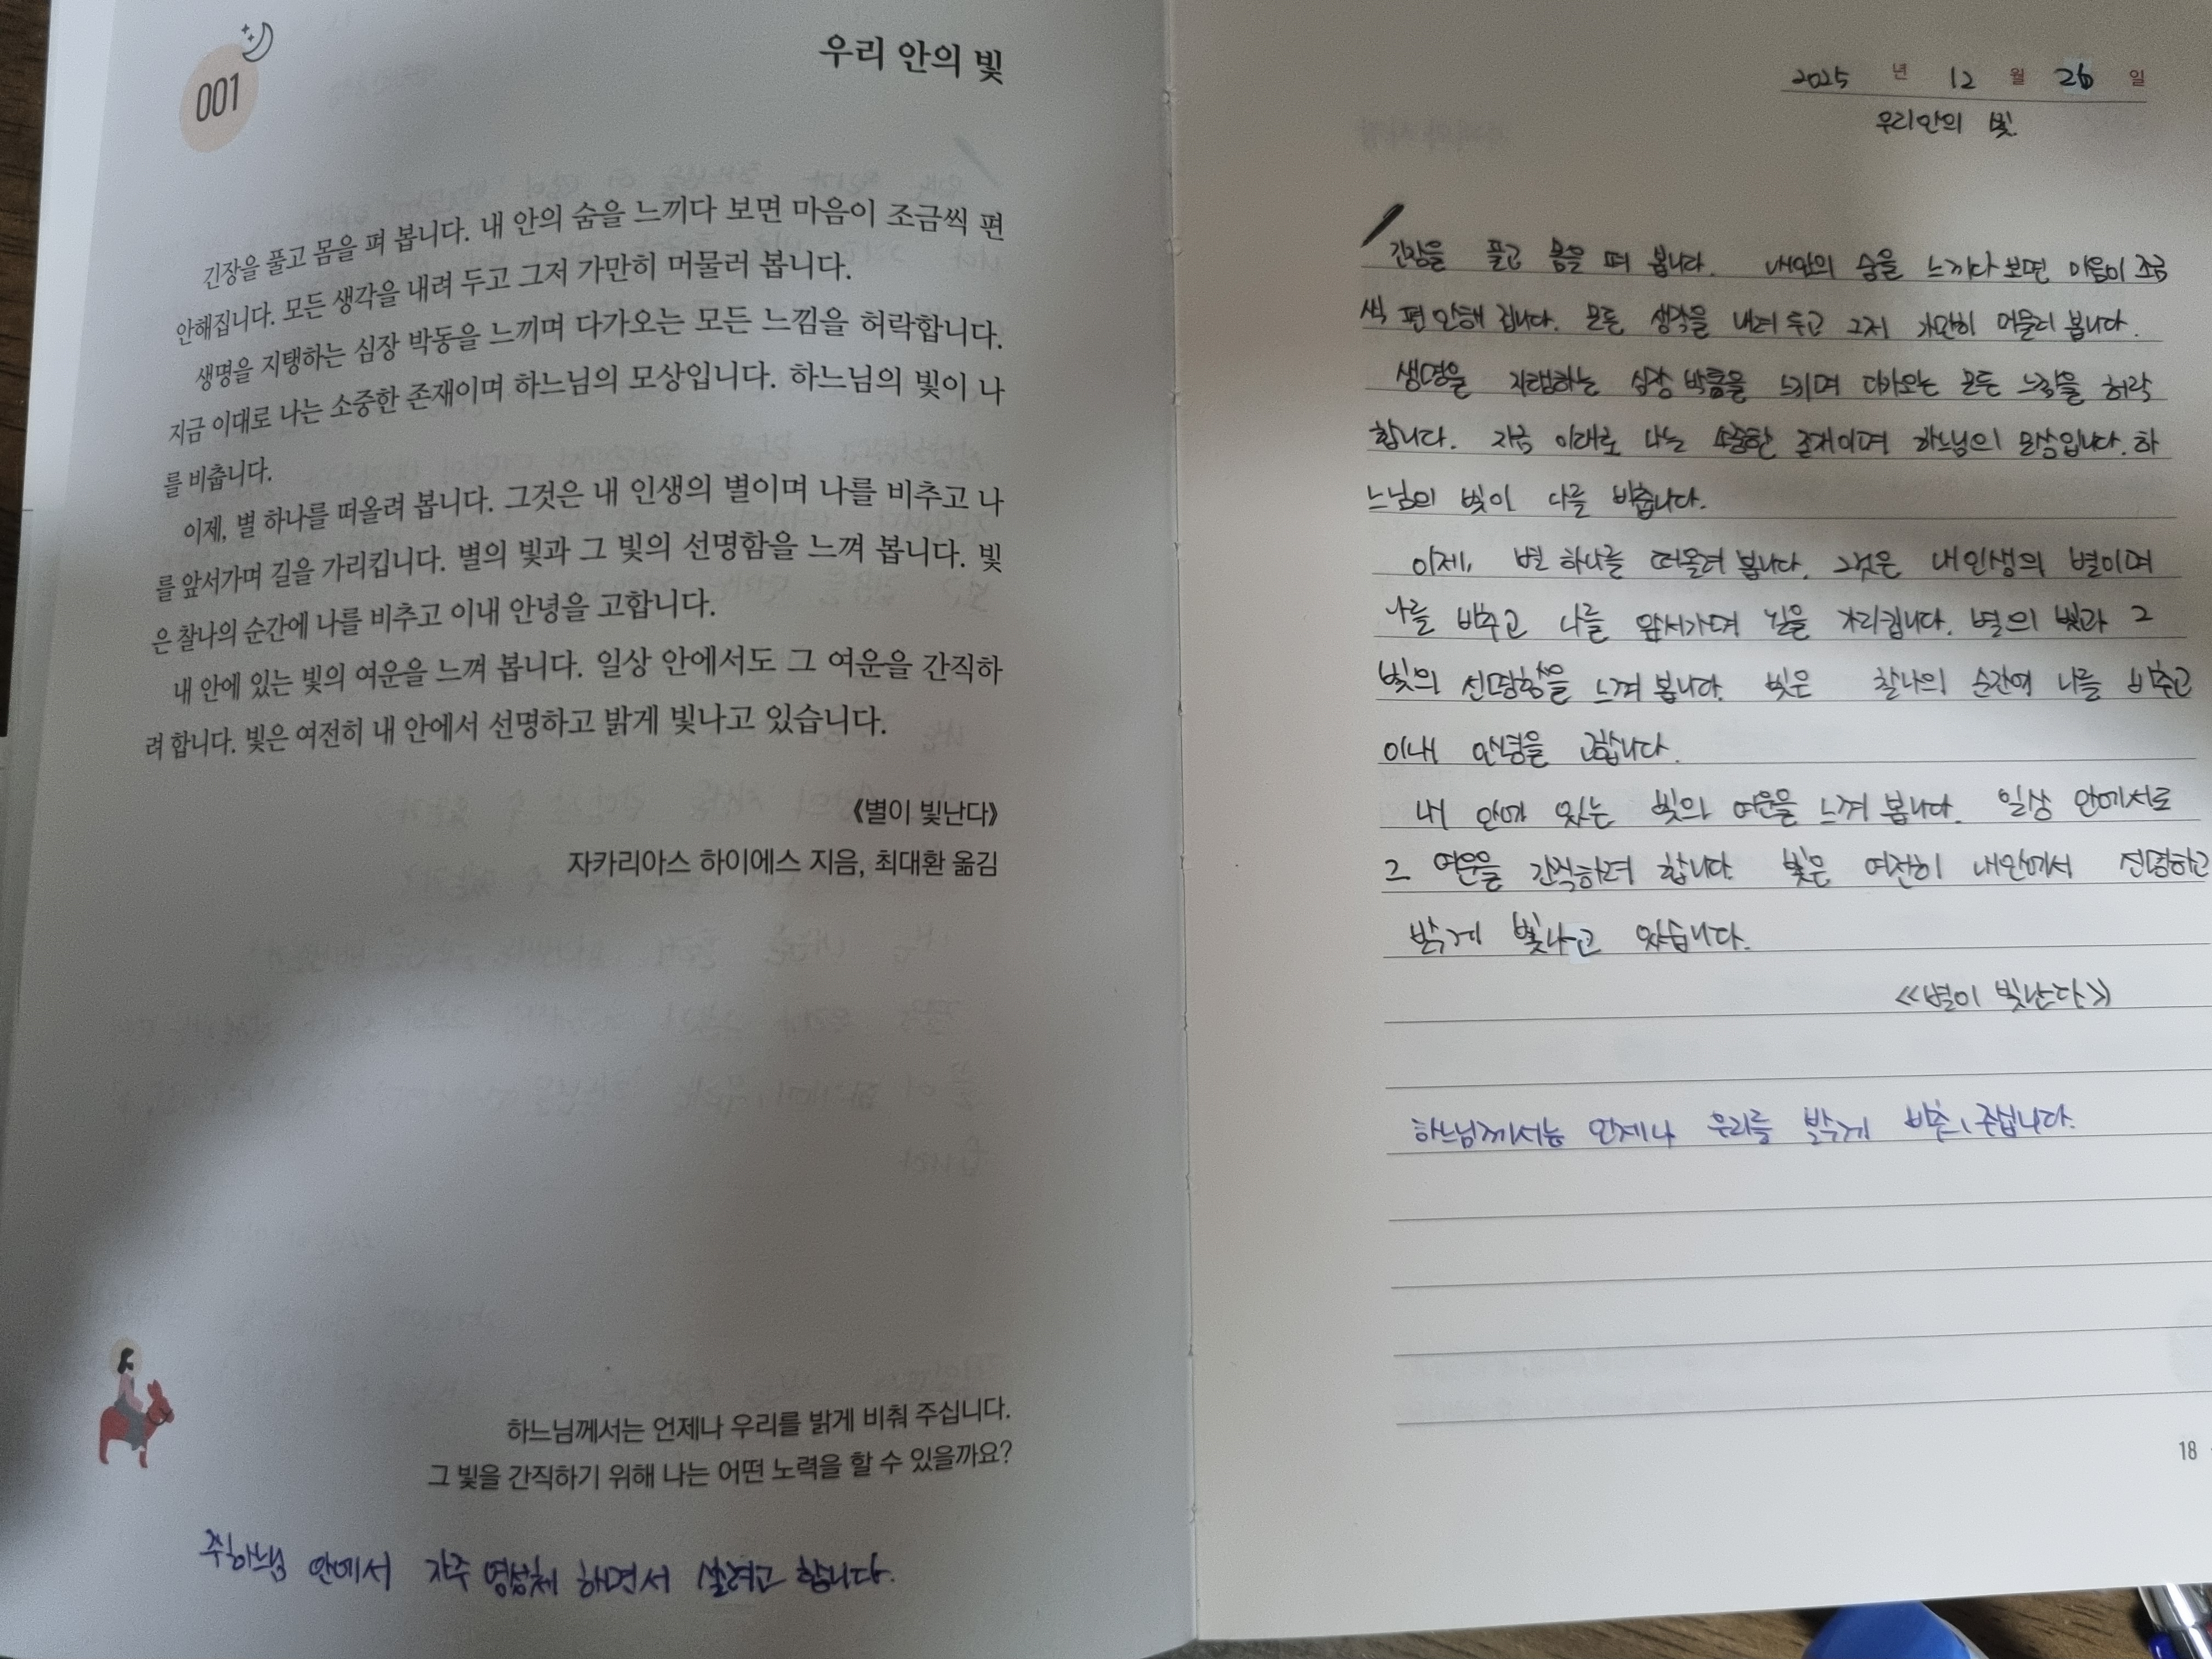 001
우리 안의 빛
긴장을 풀고 몸을 펴 봅니다. 내 안의 숨을 느끼다 보면 마음이 조금씩 편
안해집니다. 모든 생각을 내려 두고 그저 가만히 머물러 봅니다.
생명을 지탱하는 심장 박동을 느끼며 다가오는 모든 느낌을 허락합니다.
지금 이대로 나는 소중한 존재이며 하느님의 모상입니다. 하느님의 빛이 나
를 비춥니다.
이제, 별 하나를 떠올려 봅니다. 그것은 내 인생의 별이며 나를 비추고 나
를 앞서가며 길을 가리킵니다. 별의 빛과 그 빛의 선명함을 느껴 봅니다. 빛
은 찰나의 순간에 나를 비추고 이내 안녕을 고합니다.
내 안에 있는 빛의 여운을 느껴 봅니다. 일상 안에서도 그 여운을 간직하
려 합니다. 빛은 여전히 내 안에서 선명하고 밝게 빛나고 있습니다.
《별이 빛난다》
자카리아스 하이에스 지음, 최대환 옮김
하느님께서는 언제나 우리를 밝게 비춰 주십니다.
그 빛을 간직하기 위해 나는 어떤 노력을 할 수 있을까요?
주하느님 안에서 자주 영성체 하면서 살려고 합니다.
2025 년 12 월 26 일
우리안의 빛.
긴장을 풀고 몸을 펴 봅니다. 내안의 숨을 느끼다 보면 마음이 조금
씩 편안해 집니다. 모든 생각을 내려 두고 그저 가만히 머물러 봅니다.
생명을 지탱하는 심장 박동을 느끼며 다가오는 모든 느낌을 허락
합니다. 지금 이대로 나는 소중한 존재이며 하느님의 모상입니다. 하
느님의 빛이 나를 비춥니다.
이제, 별 하나를 떠올려 봅니다. 그것은 내 인생의 별이며
나를 비추고 나를 앞서가며 길을 가리킵니다. 별의 빛과 그
빛의 선명함을 느껴 봅니다. 빛은 찰나의 순간에 나를 비추고
이내 안녕을 고합니다.
내 안에 있는 빛의 여운을 느껴 봅니다. 일상 안에서도
그 여운을 간직하려 합니다. 빛은 여전히 내안에서 선명하고
밝게 빛나고 있습니다.
<<별이 빛난다>>
하느님께서는 언제나 우리를 밝게 주십니다.
18